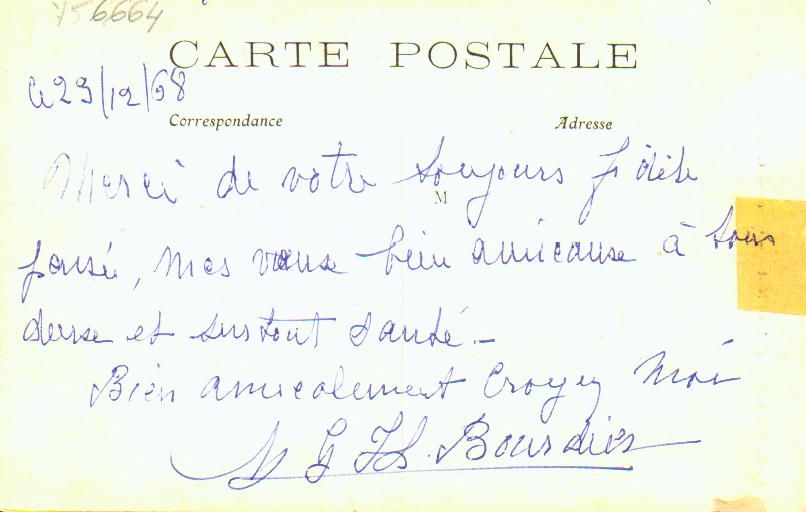 756664
CARTE POSTALE
le 29/12/68
Correspondance
Adresse
Merci de votre toujours fidèle
M
pensé, mes vœux bien amicaux à tous
deux et surtout santé.-
Bien amicalement Croyez Moi
Bourdier